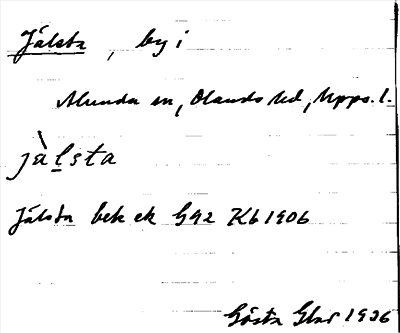 Jälsta, by i
Alunda sn, Olands hd, Upps. l.
jàl̲sta
Jälsta bek ek G92 Kb 1906
Gösta Glas 1936